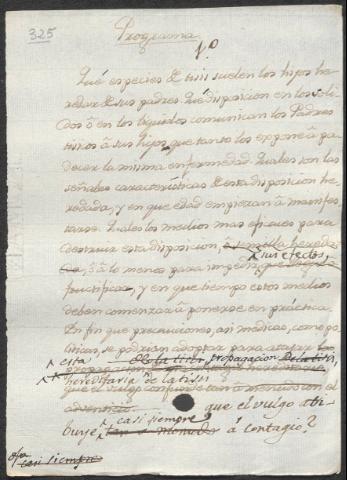 325
Programa
1º
Qué especies de tisis suelen los hijos he
redar de sus padres. Qué disposicion en los soli
dos ô en los liquidos comunican los Padres
tisicos â sus hijos, que tanto los expone â pa
decer la misma enfermedad. Quales son las
señales caracterísiticas de esta disposicion he
redada, y en que edad empiezan â manifes
tarse. Quales los medios mas eficaces para
destruir esta disposicion, ô semilla heredi
sus efectos,
, ô â lo menos para impedir que
fructifique, y en que tiempo estos medios
deben comenzar â ponerse en práctica.
En fin que precauciones, asi médicas, como po
liticas, se podrian adoptar para atajar la
esta de la tisis propagacion de la tisis
propagacion
hereditaria de la tisis
que el vulgo confunde tan a menudo con el
que el vulgo atri
casi siempre
buye tan a menudo â contagio?
casi siempre